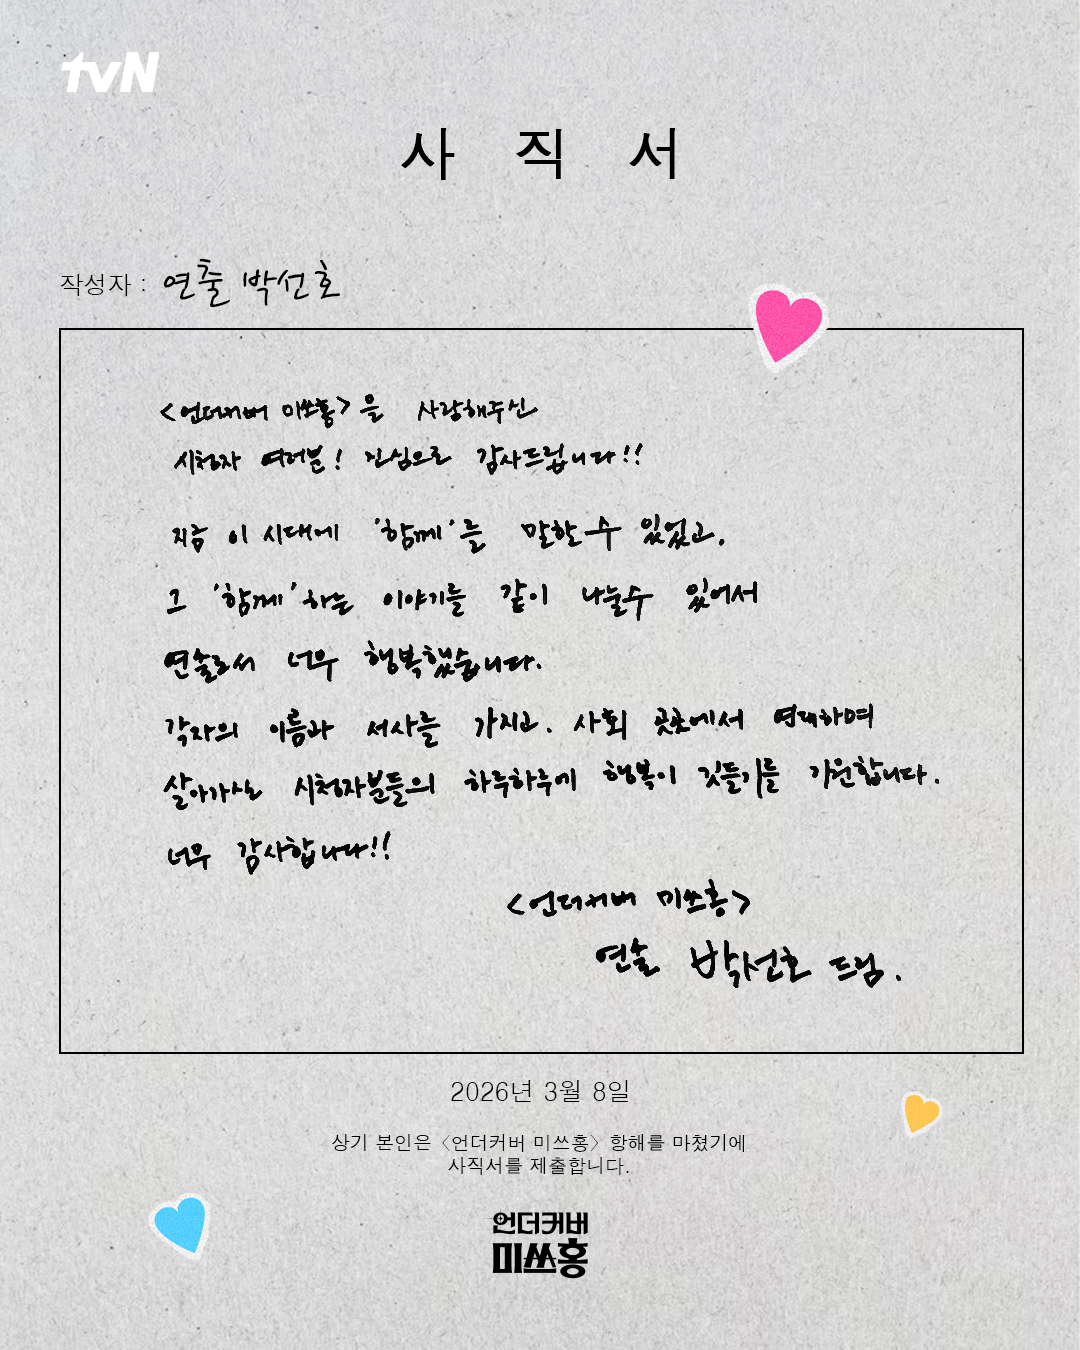 tvN
사 직 서
작성자 : 연출 박선호
<언더커버 미쓰홍>을 사랑해주신
시청자 여러분! 진심으로 감사드립니다!!
지금 이 시대에 '함께'를 말할 수 있었고,
그 '함께'하는 이야기를 같이 나눌수 있어서
연출로서 너무 행복했습니다.
각자의 이름과 서사를 가지고. 사회 곳곳에서 연대하며
살아가시는 시청자분들의 하루하루에 행복이 깃들기를 기원합니다.
너무 감사합니다!!
<언더커버 미쓰홍>
연출 박선호 드림.
2026년 3월 8일
상기 본인은 〈언더커버 미쓰홍〉 항해를 마쳤기에
사직서를 제출합니다.
언더커버
미쓰홍